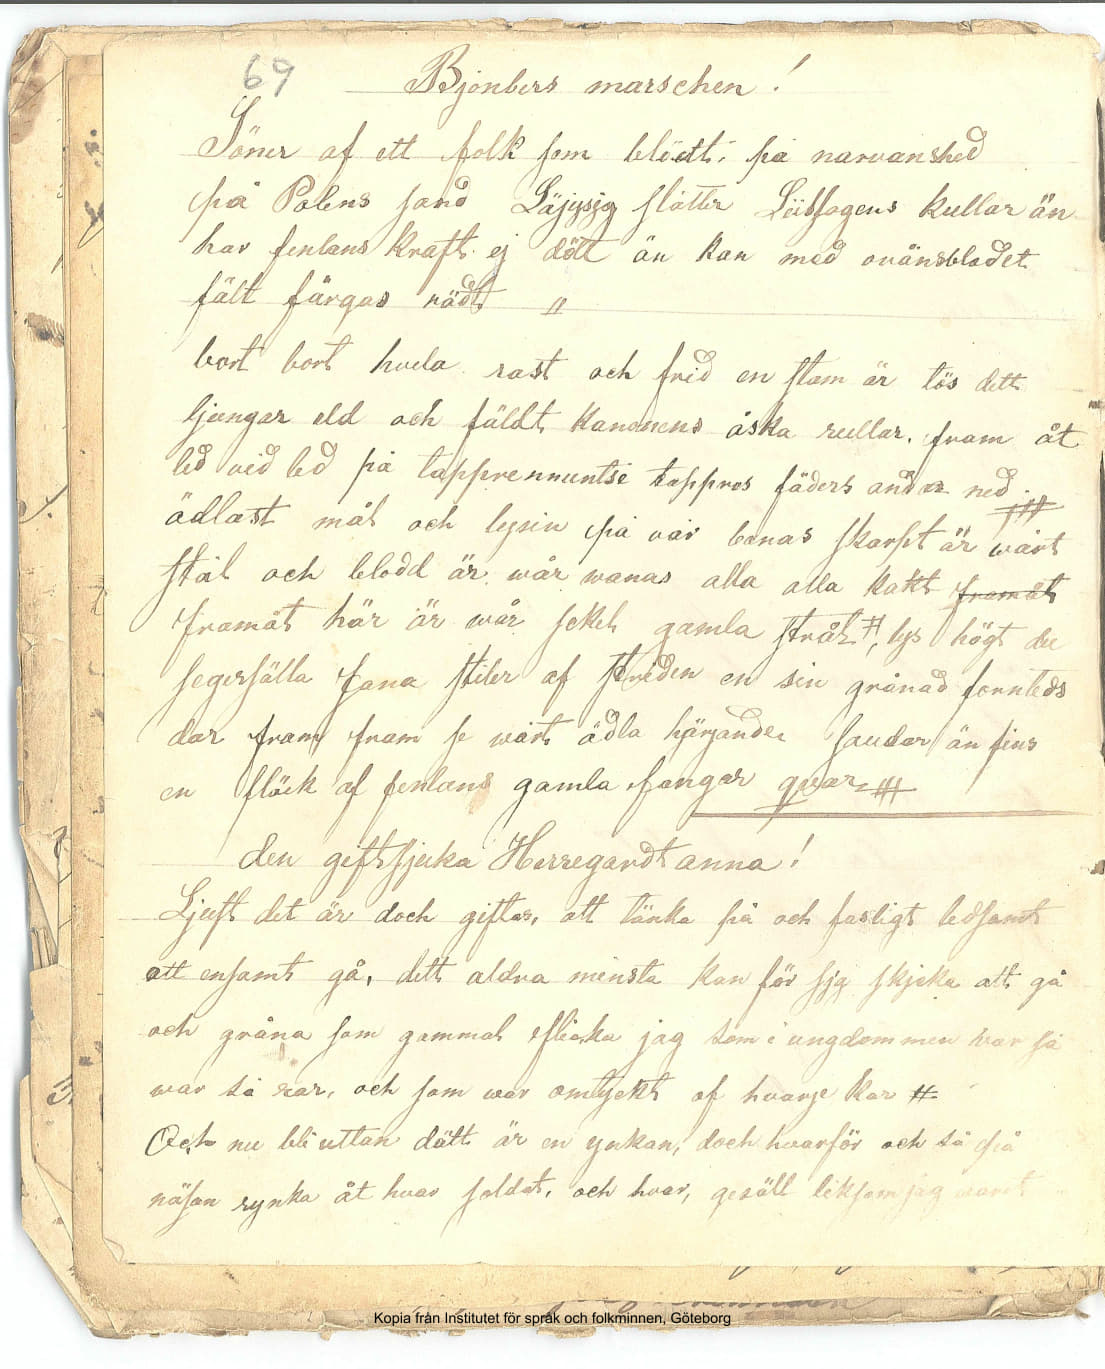 69
Bjönbers marschen!
Söner af ett folk som blödt, på narvanshed
på Polens sand Läjpsjg slätter Lüdsagens kullar än
har fenlans kraft ej dött än kan med ovänsblodet
fält färgas rödt "
bort bort hvela rast och frid en stam är lös dett
ljungar eld och fäldt kanonens åska rullar, fram åt
led vid led på tapprennuntsi tappros fäders andar ned
ädlast mål och lysin på vår banas skarpt är wårt
stål och blodd är wår wanas alla alla kakt framåt
framåt här är wår sekel gamla stråt #, lys högt du
segersälla fana sliter af striden en sin grånad forntids
dar fram fram se wårt ädla härjande saudar än fins
en fläck af fenlans gamla fangar qvar #
den giftssjuka Herregardt anna!
Ljuft det är doch giftas, att tänka på och fasligt ledsamt
att ensamt gå, dett aldra minsta kan för sjg skjcka att gå
och gråna som gammal flicka jag som i ungdommen var så
war så rar, och som war omtyckt af hvarje kar #
Och nu bli uttan dätt är en ynkan, doch hvarför och så på
näsan rynka åt hvar soldat, och hvar, gesäll liksom jag warit
Kopia från Institutet för språk och folkminnen, Göteborg